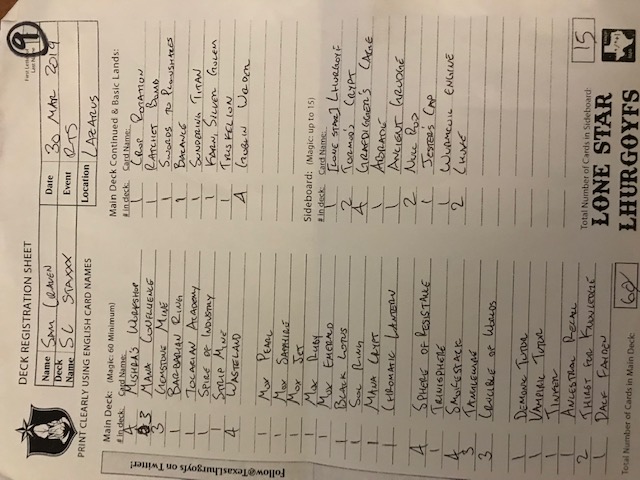 DECK REGISTRATION SHEET
9
Name SAM CRAVEN
Deck Name 5C STAXXX
Date 30 MAR 2019
Event RTS
Location LAZARUS
PRINT CLEARLY USING ENGLISH CARD NAMES
Follow@TexasLhurgoyfs on Twitter!
Main Deck: (Magic: 60 Minimum)
# in deck: Card Name:
4 MISHRA'S WORKSHOP
3 MANA CONFLUENCE
3 GEMSTONE MINE
1 BARBARIAN RING
1 TOLARIAN ACADEMY
1 SPIRE OF INDUSTRY
1 STRIP MINE
4 WASTELAND
1 MOX PEARL
1 MOX SAPPHIRE
1 MOX JET
1 MOX RUBY
1 MOX EMERALD
1 BLACK LOTUS
1 SOL RING
1 MANA CRYPT
1 CHROMATIC LANTERN
4 SPHERE OF RESISTANCE
1 TRINISPHERE
4 SMOKESTACK
3 TANGLEWIRE
3 CRUCIBLE OF WORLDS
1 DEMONIC TUTOR
1 VAMPIRIC TUTOR
1 TINKER
1 ANCESTRAL RECALL
2 THIRST FOR KNOWLEDGE
1 DACK FAYDEN
Total Number of Cards in Main Deck: 60
Main Deck Continued & Basic Lands:
# in deck: Card Name:
1 CROP ROTATION
1 RATCHET BOMB
1 SWORDS TO PLOWSHARES
1 BALANCE
1 SUNDERING TITAN
1 KARN, SILVER GOLEM
1 TRISKELION
4 GOBLIN WELDER
Sideboard: (Magic: up to 15)
# in deck: Card Name:
1 [LONE STAR] LHURGOYF
2 TORMOD'S CRYPT
4 GRAFDIGGER'S CAGE
1 ABRADE
1 ANCIENT GRUDGE
2 NULL ROD
1 JESTER'S CAP
1 WURMCOIL ENGINE
2 CHOKE
Total Number of Cards in Sideboard: 15
LONE STAR
LHURGOYFS